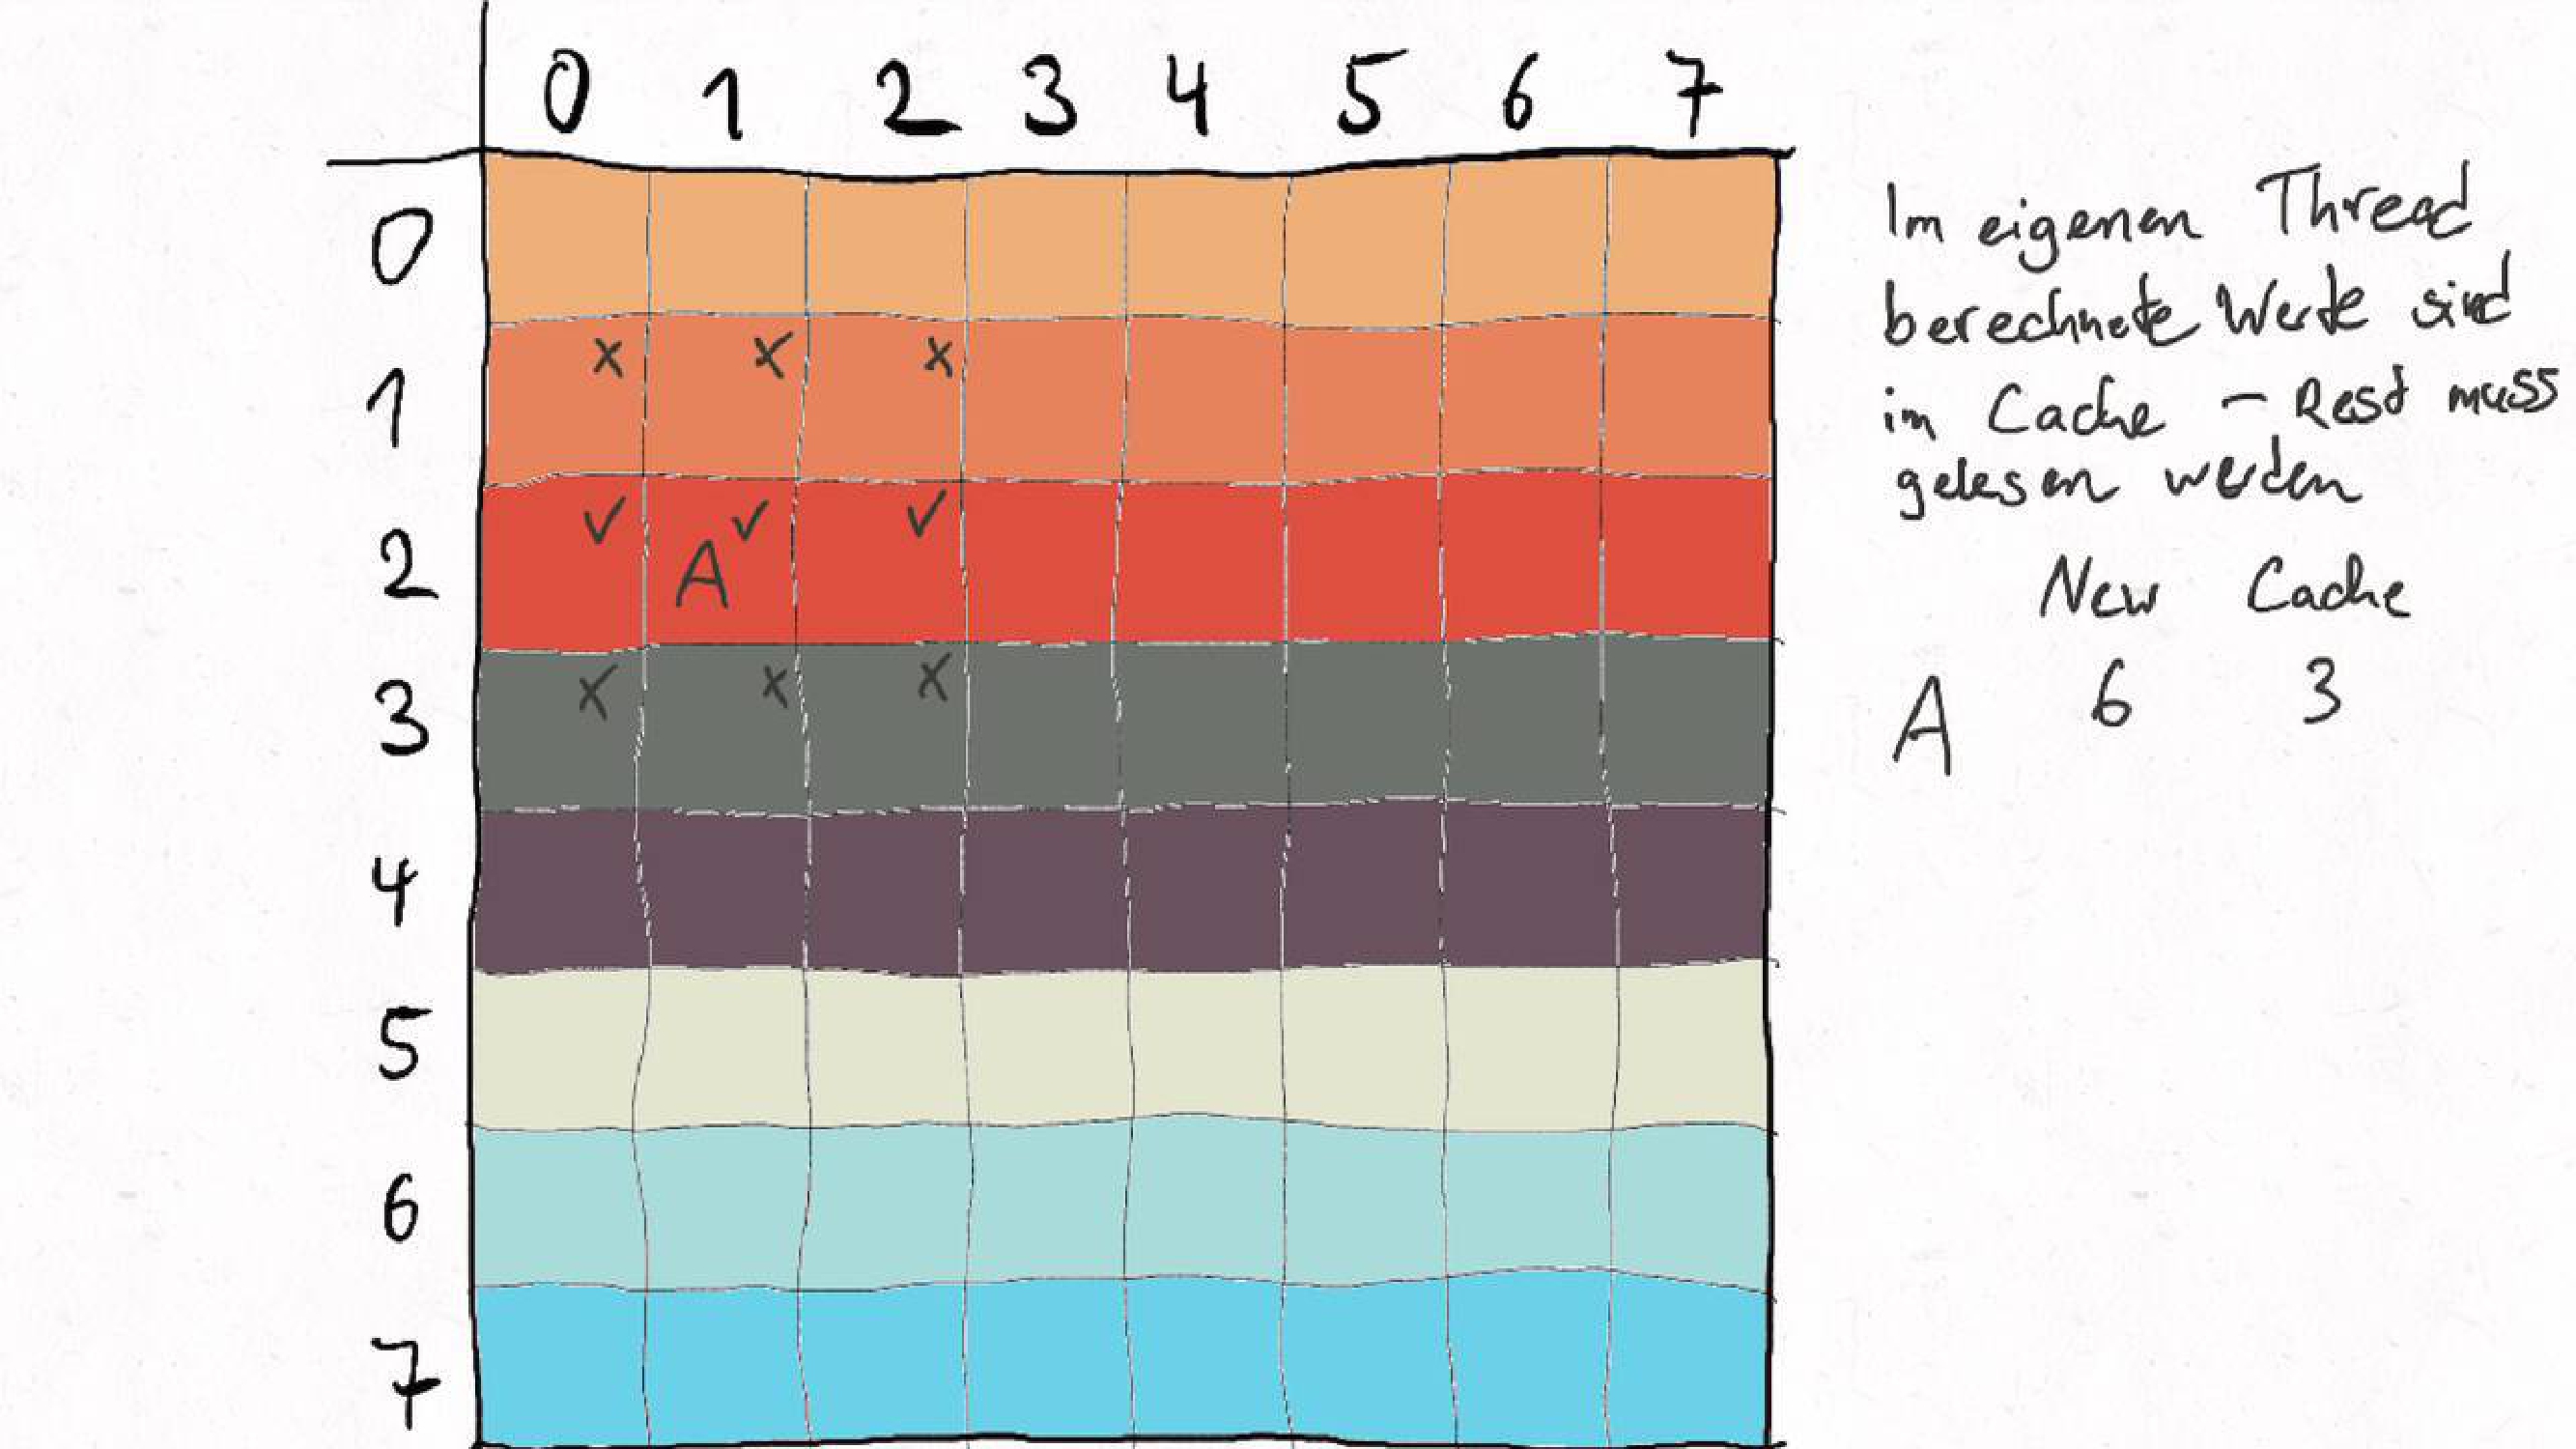 0 1 2 3 4 5 6 7
0
1 x x x
2 ✓ A ✓ ✓
3 x x x
4
5
6
7
Im eigenen Thread
berechnete Werte sind
im Cache – Rest muss
gelesen werden
New Cache
A 6 3